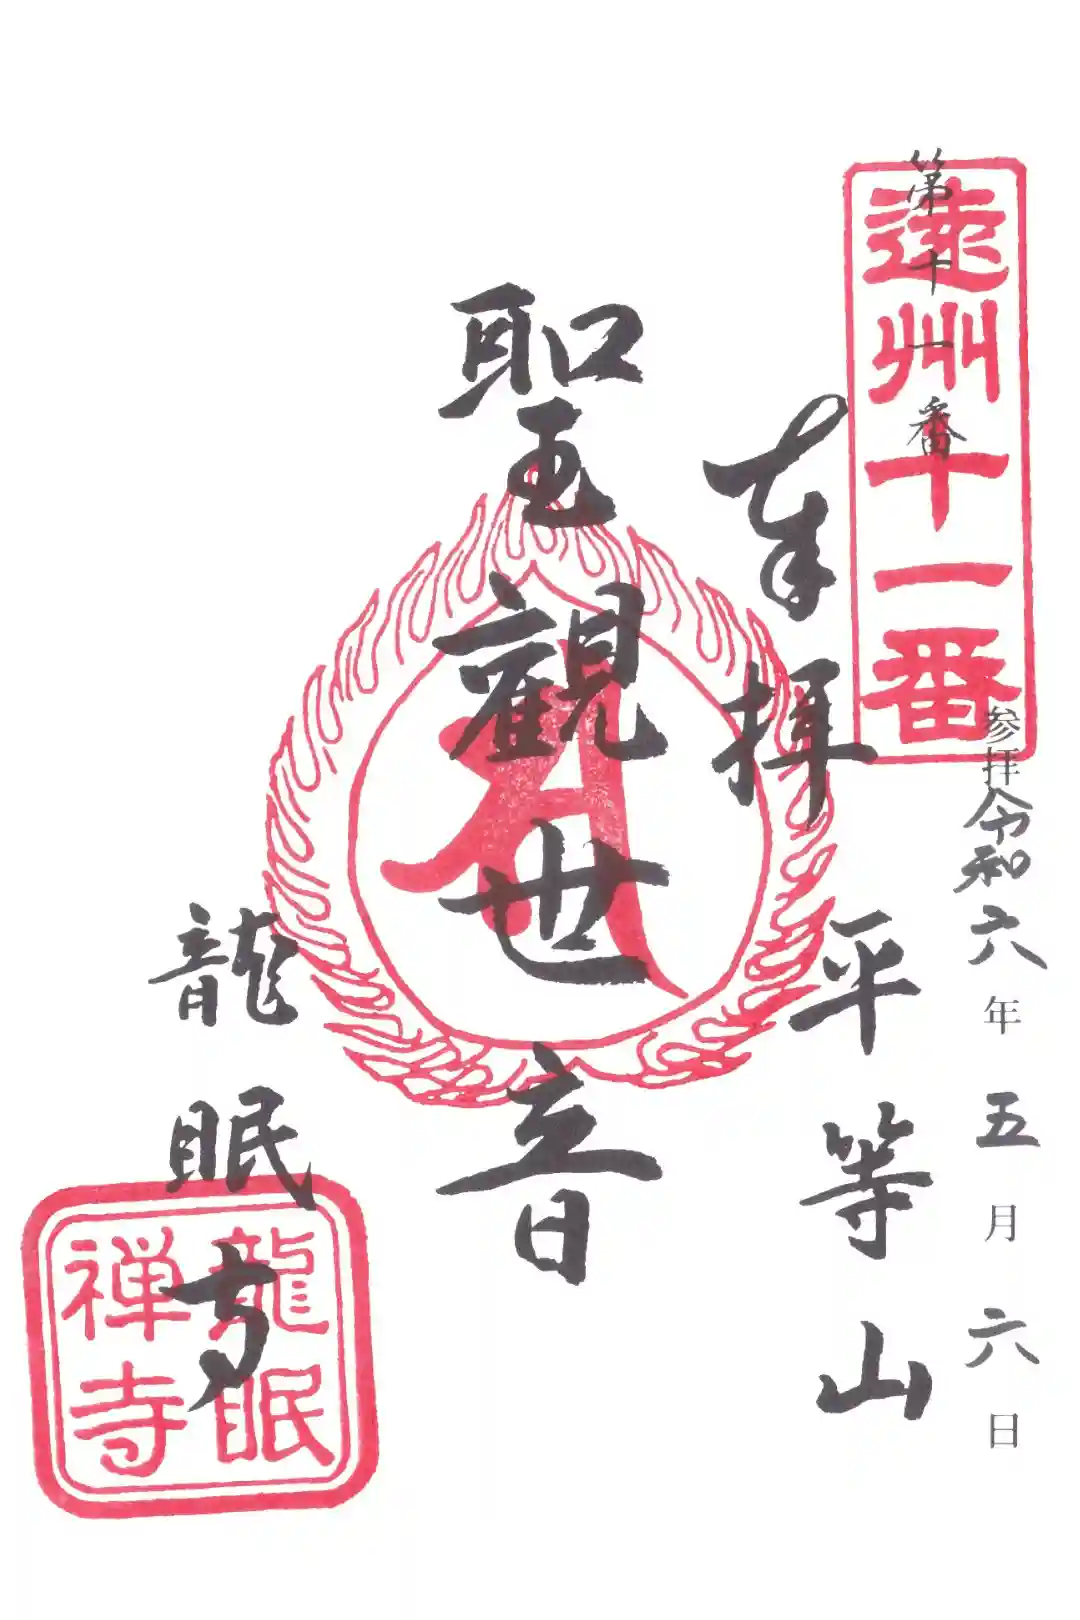 遠州十一番
第十一番
参拝 令和六年五月六日
奉拝
平等山
聖觀世音
龍眠寺
龍眠
禅寺